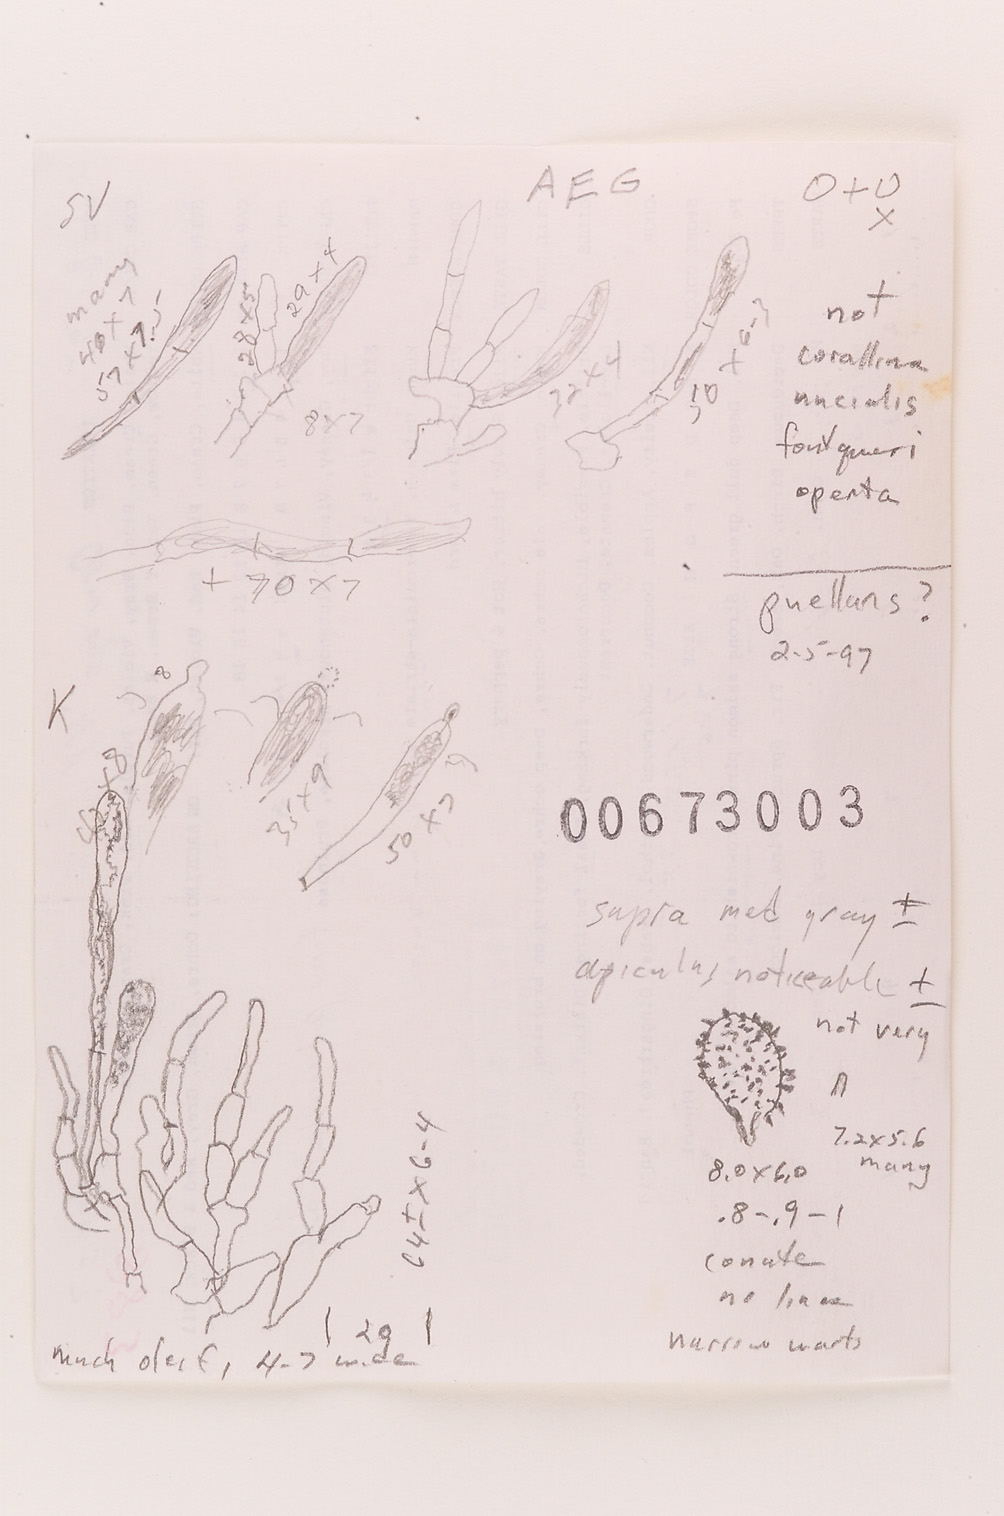 SV
AEG
O+U
X
many
40×7
57×7.5
28×5
29×4
8×7
32×4
50
+
6-7
not
corallina
uncialis
fontqueri
operta
+ 70×7
puellaris?
2-5-97
K
8
×8
35×9
50×7
9
00673003
supra med gray ±
apiculus noticeable ±
not very
7.2×5.6
many
8.0×6.0
.8-.9-1
conate
no lines
narrow warts
64±×6-4
29
much def, 4-7 wide